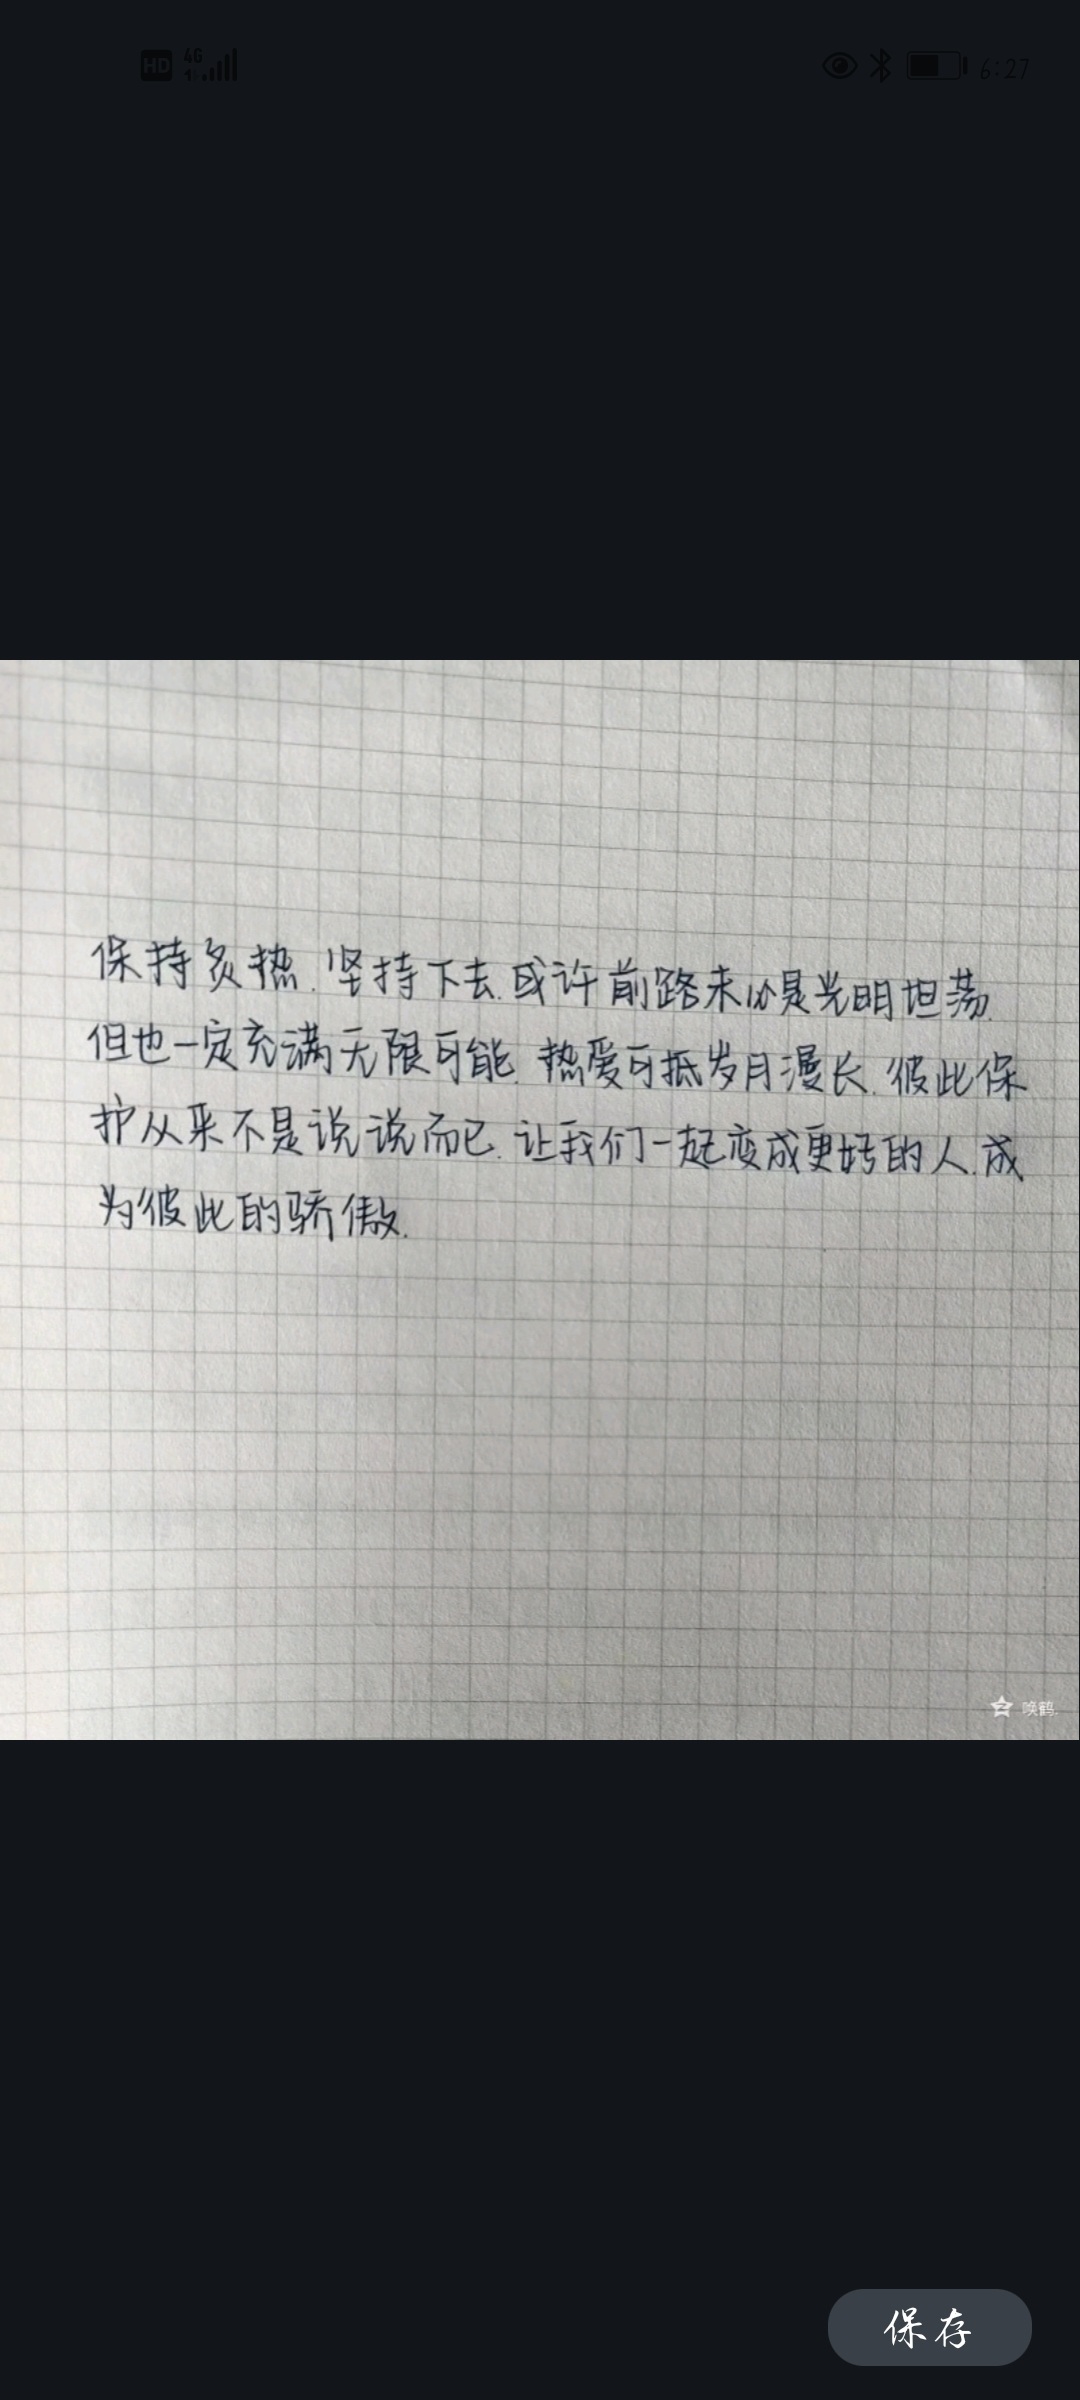 HD 4G 6:27
保持炙热.坚持下去.或许前路未必是光明坦荡.
但也一定充满无限可能.热爱可抵岁月漫长.彼此保
护从来不是说说而已.让我们一起变成更好的人.成
为彼此的骄傲.
唤鹤.
保存